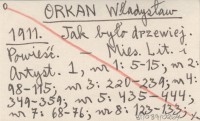 ORKAN Władysław
1911. Jak było drzewiej.
Powieść. – Mies. Lit. i
Artyst. 1, nr 1: 5-15; nr 2:
98-115; nr 3: 220-239; nr 4:
349-359; nr 5: 435-444;
nr 7: 68-76; nr 8: 123-133;